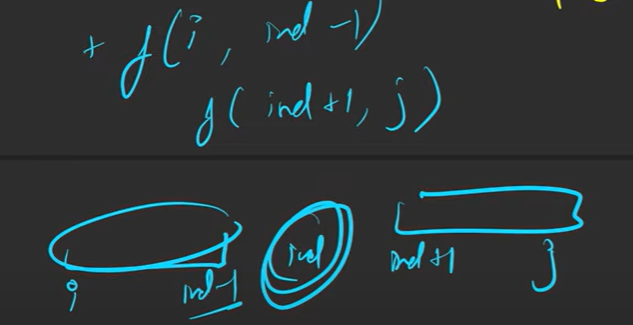 + f(i, ind-1)
f(ind+1, j)
i ind-1 ind ind+1 j